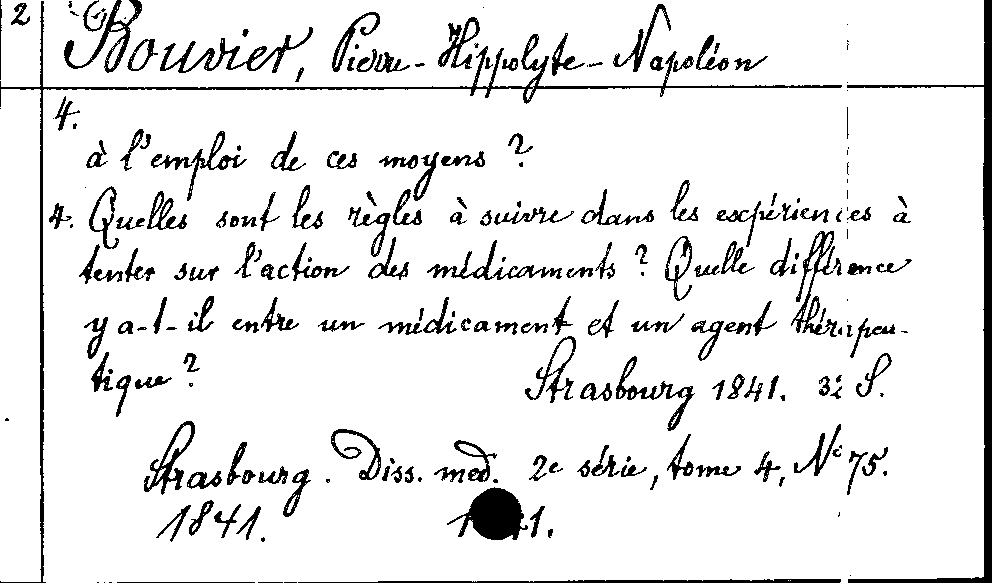 2
Bouvier, Pierre-Hippolyte-Napoléon
4.
à l'emploi de ces moyens ?
4. Quelles sont les règles à suivre dans les expériences à
tenter sur l'action des médicaments ? Quelle différence
y a-t-il entre un médicament et un agent thérapeu-
tique ?
Strasbourg 1841. 32 S.
Strasbourg. Diss. med. 2e série, tome 4, No 75.
1841. 1841.